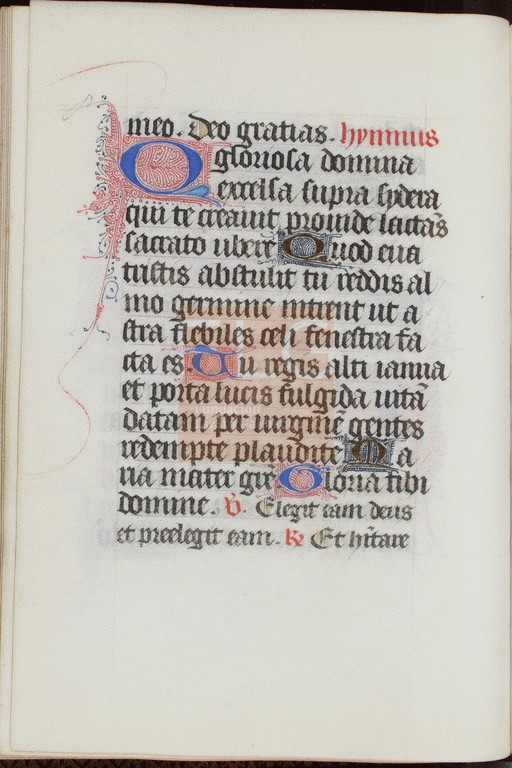 meo. Deo gratias. hymnus
O gloriosa domina
excelsa supra sydera
qui te creauit prouide lactas
sacrato ubere Quod eua
tristis abstulit tu reddis al
mo germine intrent ut a
stra flebiles celi fenestra fa
cta es. Tu regis alti ianua
et porta lucis fulgida uitā
datam per uirginē gentes
redempte plaudite Ma
ria mater gre Gloria tibi
domine. ℣. Elegit eam deus
et preelegit eam. ℟ Et hītare